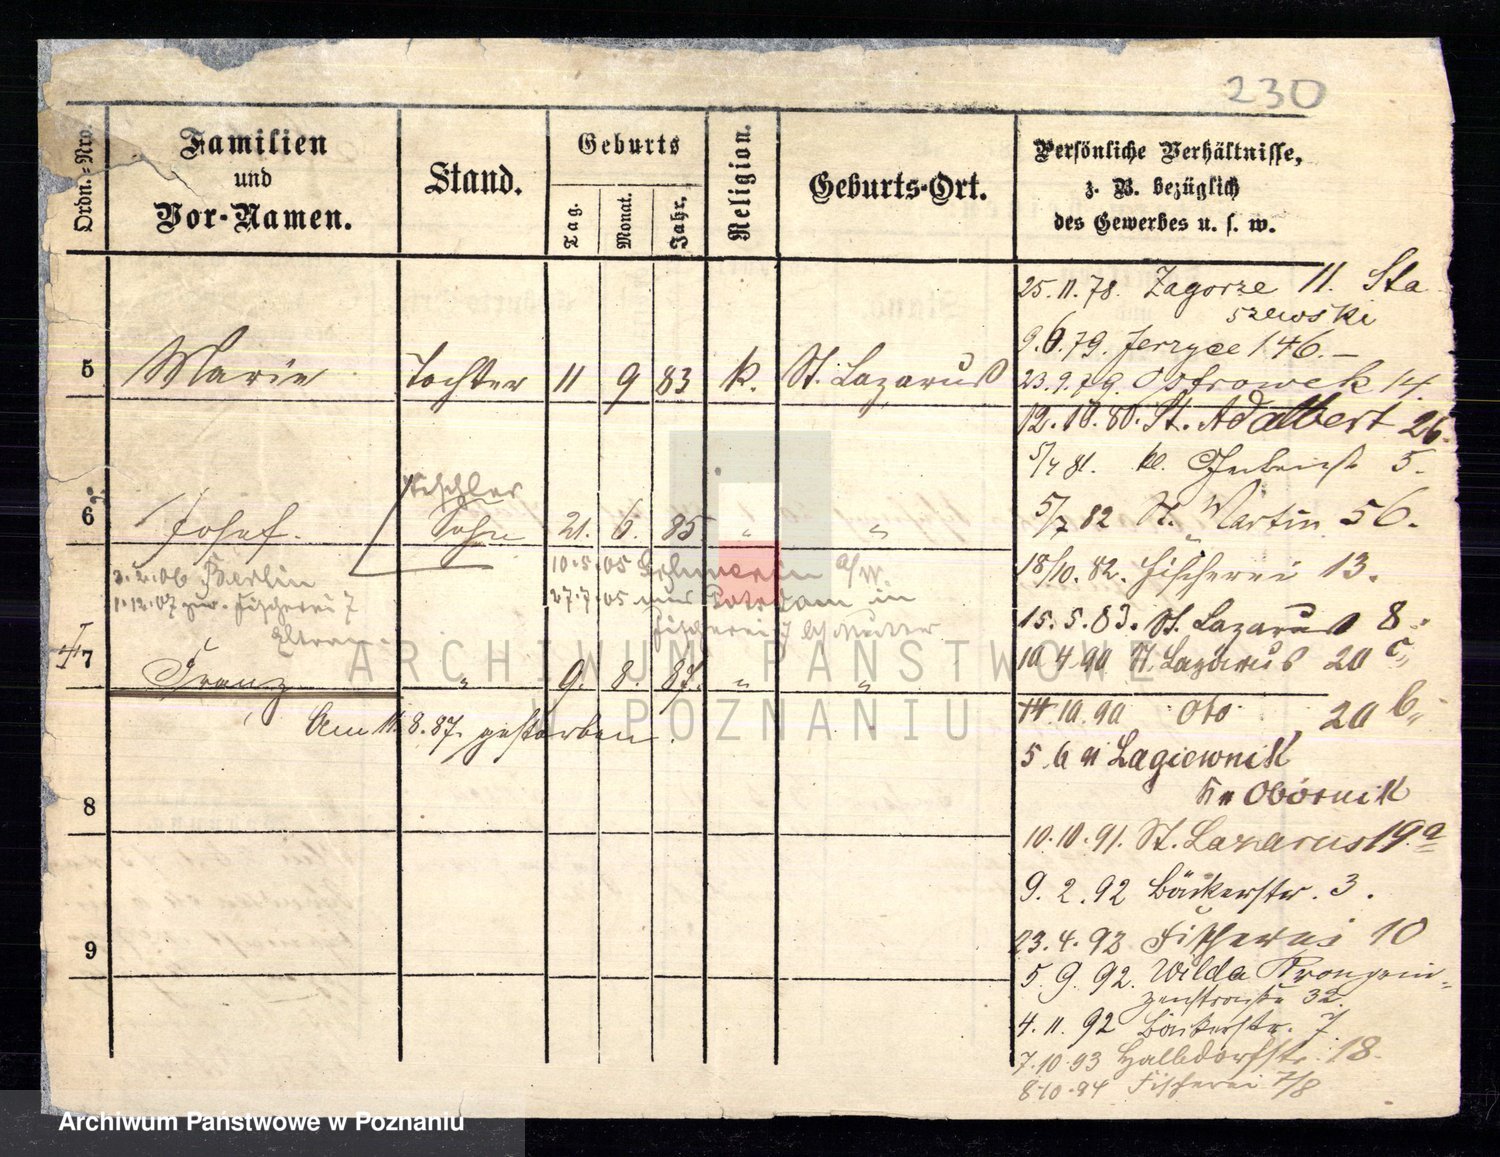 230
Ordn.-Nro.
Familien
und
Vor-Namen.
Stand.
Geburts
Tag.
Monat.
Jahr.
Religion.
Geburts-Ort.
Persönliche Verhältnisse,
z. B. bezüglich
des Gewerbes u. s. w.
5 Marie Tochter 11 9 83 k. St. Lazarus
6 Josef. Tischler
Sohn 21. 6. 85 " "
3.2.06 Berlin
1.12.07 zur. Fischerei 7
Eltern
10.5.05 Schwerin a/W.
27.7.05 aus Potsdam in
Fischerei 7 b/ Mutter
7 Franz " 9. 8. 87. " "
Am 11.8.87. gestorben.
8
9
25.11.78. Zagorze 11. Sta
szewski
9.6.79. Jerzyce 146.
23.9.79. Ostrowek 14.
12.10.80. St. Adalbert 26.
5/4 81. kl. 5.
5/7 82 St. Martin 56.
18/10. 82. Fischerei 13.
15.5.83. St. Lazarus 8.
10 4.90 St. Lazarus 20 c
14.10.90 oto 20 b
5.6 91 Lagiewnik
Kr Obornik
10.10.91. St. Lazarus 19a
9.2.92 Bäckerstr. 3.
23.4.92 Fischerei 10
5.9.92. Wilda Kronprin-
zenstraße 32.
4.11.92 Bäckerstr. 7
7.10.93 Halbdorfstr. 18.
8.10.94 Fischerei 7/8
ARCHIWUM PAŃSTWOWE
W POZNANIU
Archiwum Państwowe w Poznaniu